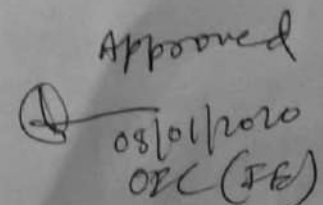 Approved
08/01/2020
OIC (FE)